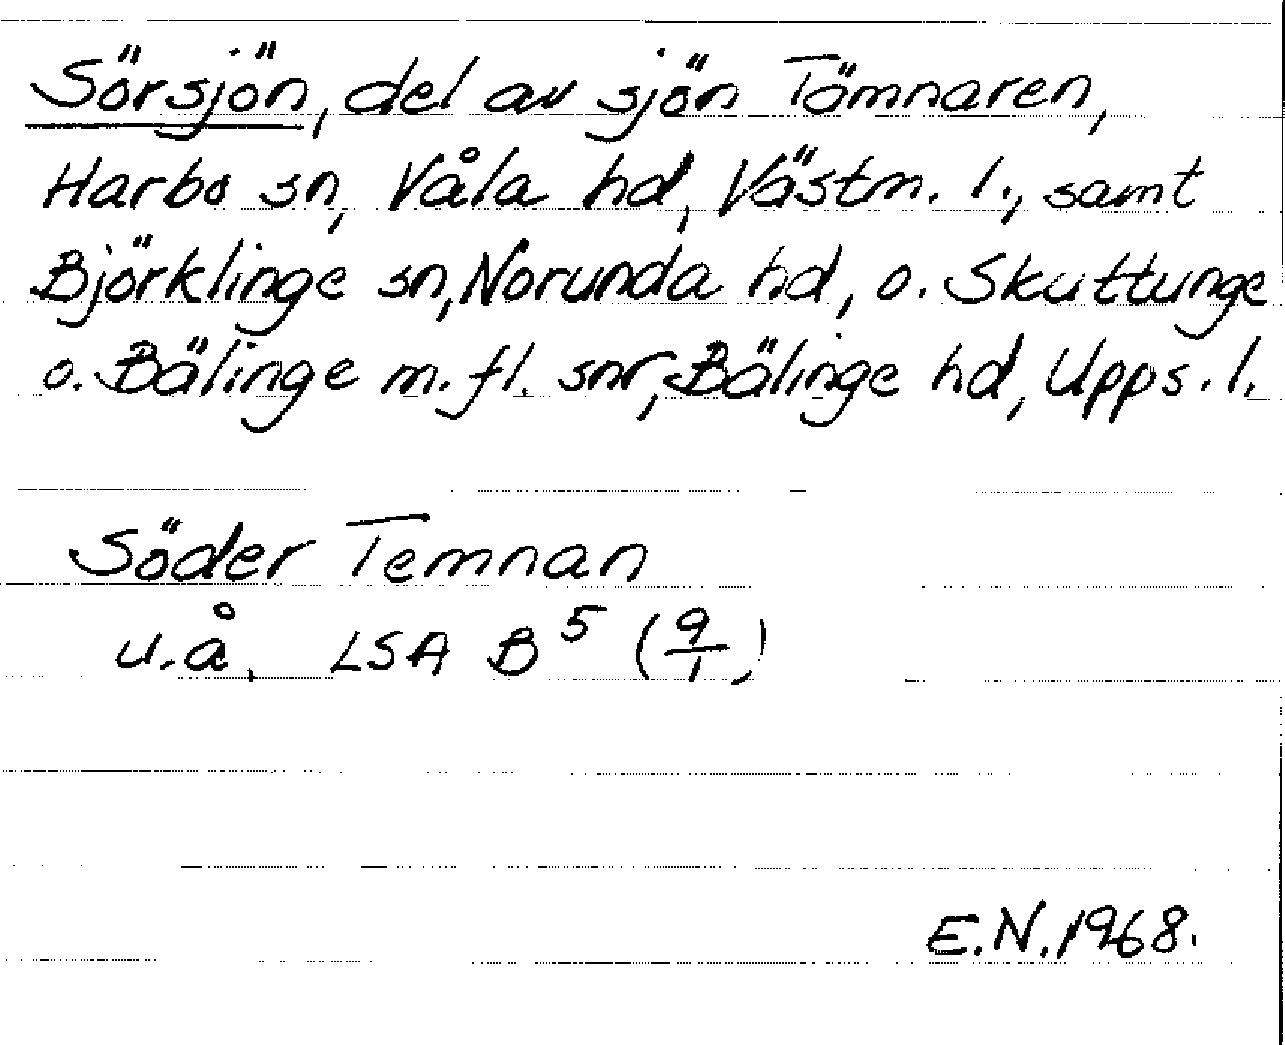 Sörsjön, del av sjön Tämnaren,
Harbo sn, Våla hd, Västm. l., samt
Björklinge sn, Norunda hd, o. Skuttunge
o. Bälinge m.fl. snr, Bälinge hd, Upps. l.
Söder Temnan
u.å. LSA B⁵ (9/1)
E.N. 1968.